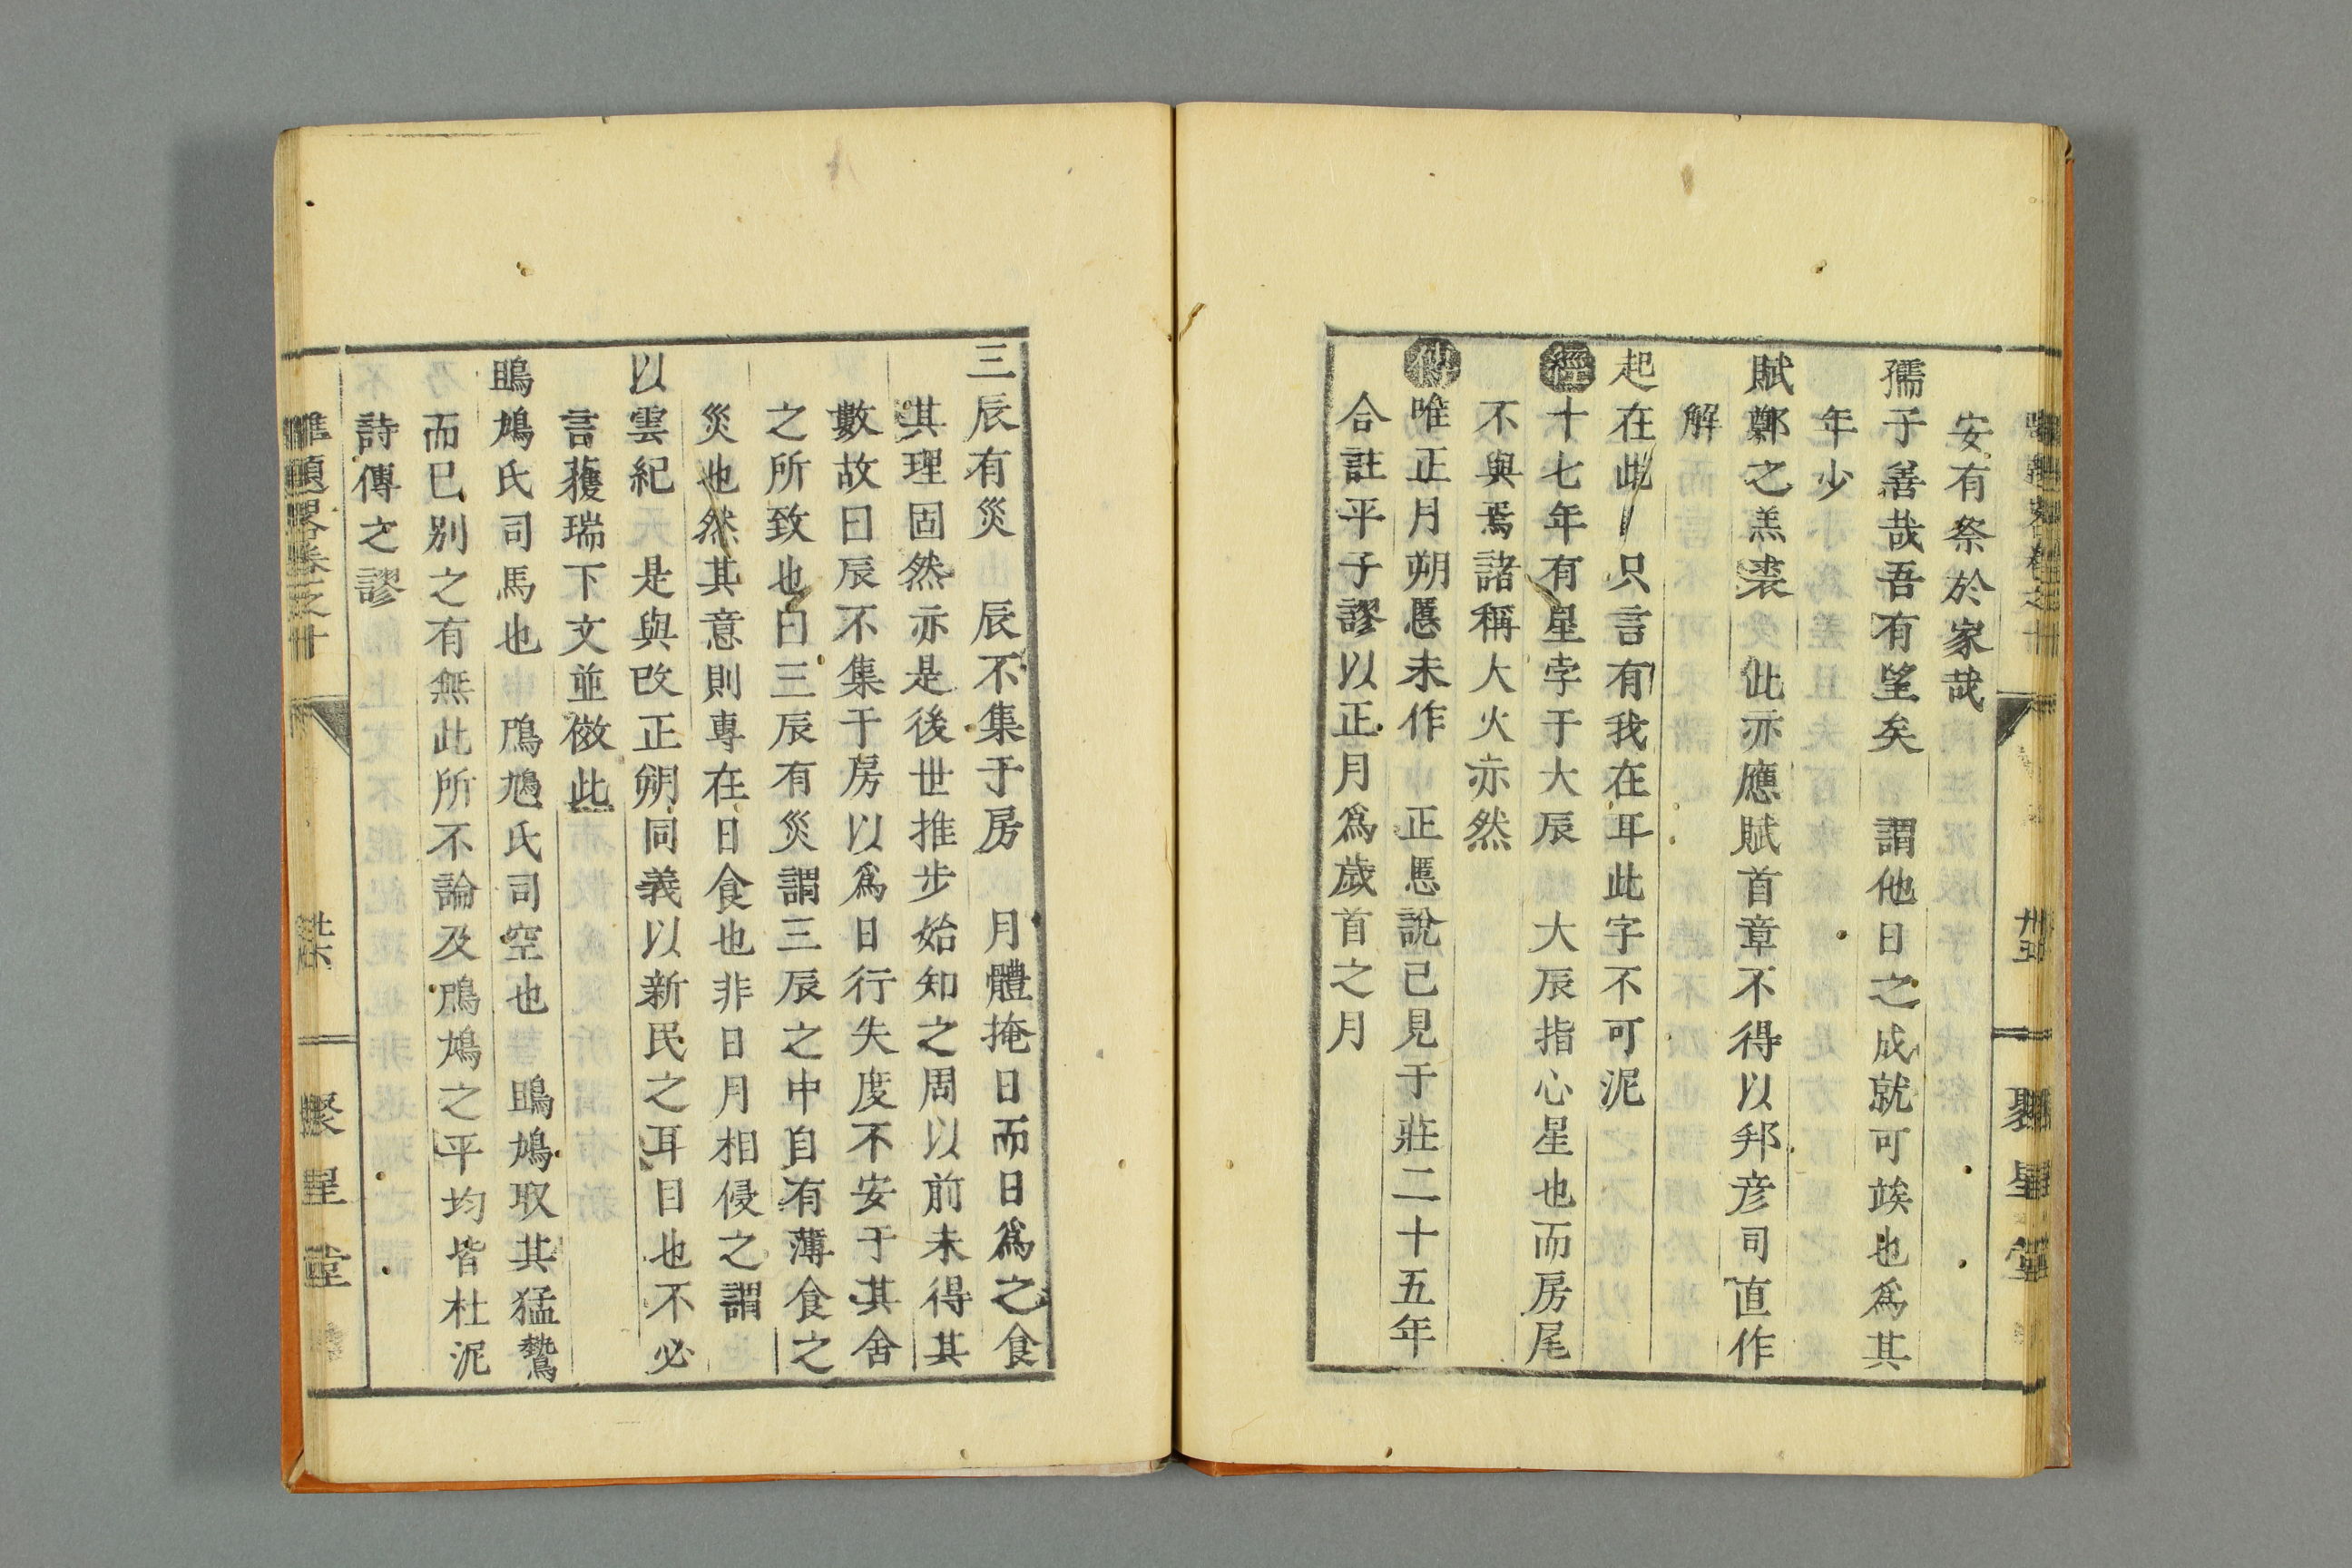 安有祭於家哉
孺子善哉吾有望矣　謂他日之成就可竢也爲其
年少
賦鄭之羔裘　此亦應賦首章不得以邦彦司直作
解
起在此　只言有我在耳此字不可泥
經十七年有星孛于大辰　大辰指心星也而房尾
不與焉諸稱大火亦然
傳唯正月朔慝未作　正慝說已見于莊二十五年
合註平子謬以正月爲歲首之月
三辰有災　辰不集于房　月體掩日而日爲之食
其理固然亦是後世推步始知之周以前未得其
數故曰辰不集于房以爲日行失度不安于其舍
之所致也曰三辰有災謂三辰之中自有薄食之
災也然其意則專在日食也非日月相侵之謂
以雲紀　是與改正朔同義以新民之耳目也不必
言獲瑞下文並倣此
鴡鳩氏司馬也　鳲鳩氏司空也　鴡鳩取其猛鷙
而已别之有無此所不論及鳲鳩之平均皆杜泥
詩傳之謬
畧卷之十
聚星堂